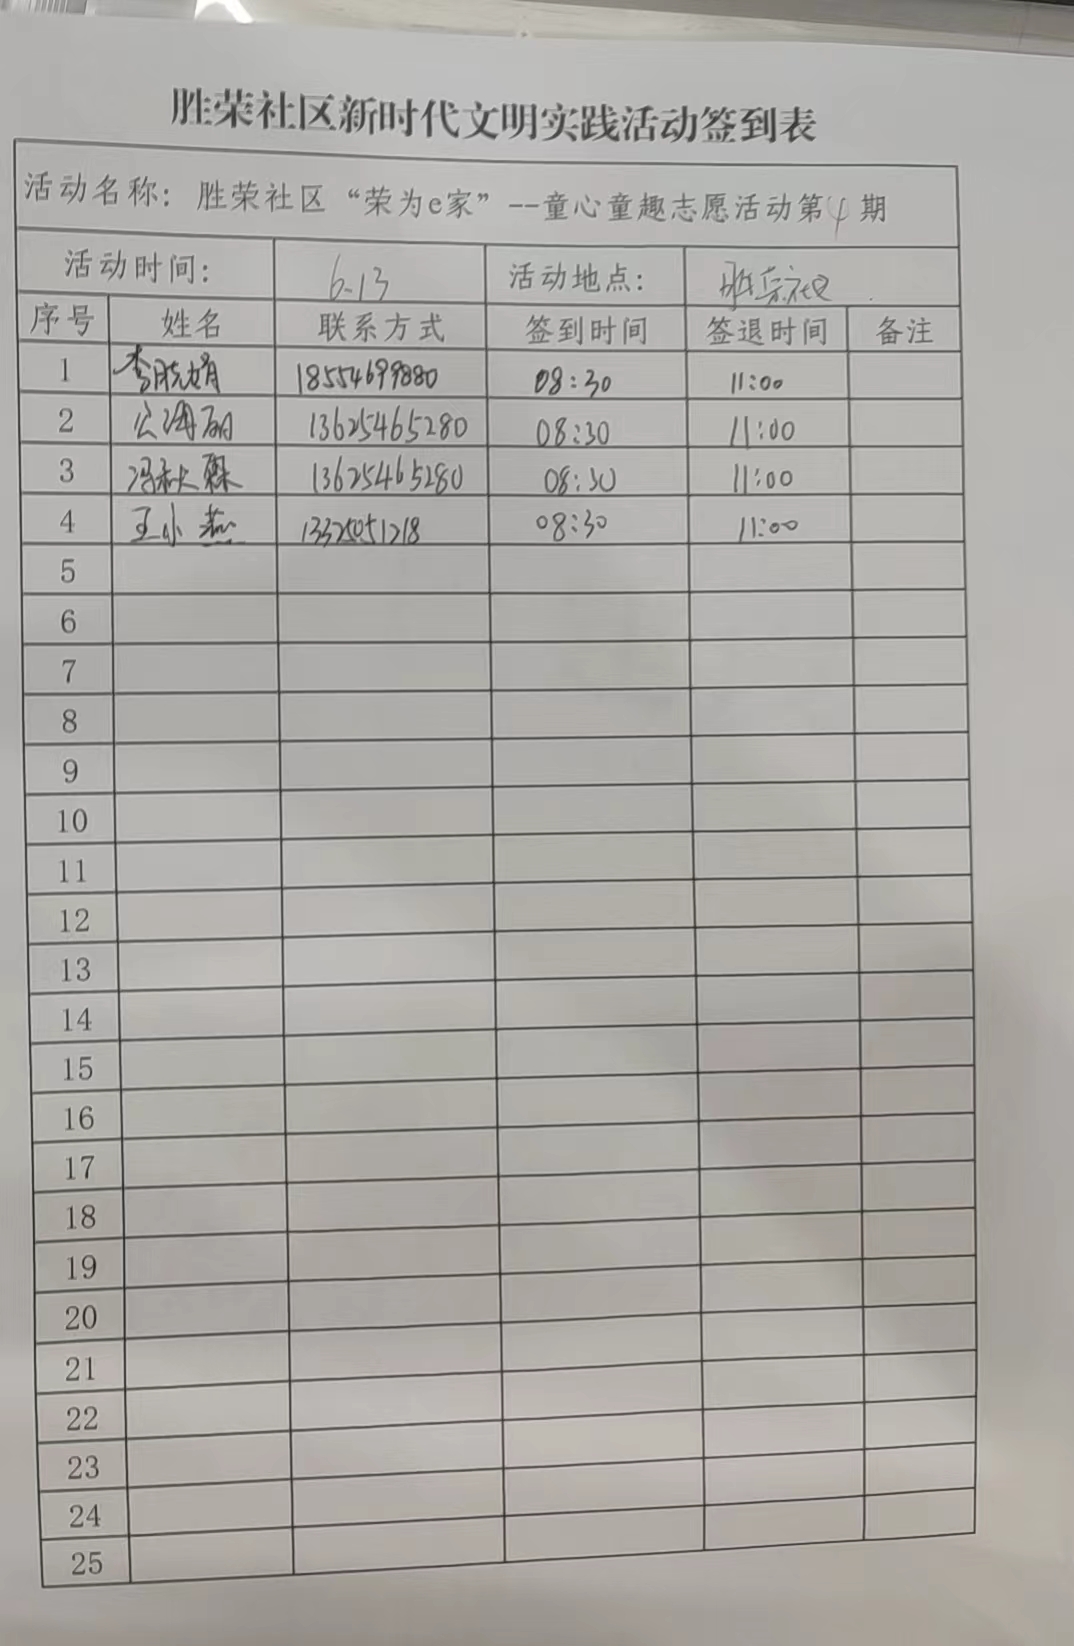 胜荣社区新时代文明实践活动签到表
活动名称：胜荣社区“荣为e家”--童心童趣志愿活动第4期
活动时间： 6-13 活动地点： 胜荣社区
序号 姓名 联系方式 签到时间 签退时间 备注
1 李晓娟 18554699880 08:30 11:00
2 公海丽 13625465280 08:30 11:00
3 冯秋 13625465280 08:30 11:00
4 王小燕 13325051218 08:30 11:00
5
6
7
8
9
10
11
12
13
14
15
16
17
18
19
20
21
22
23
24
25